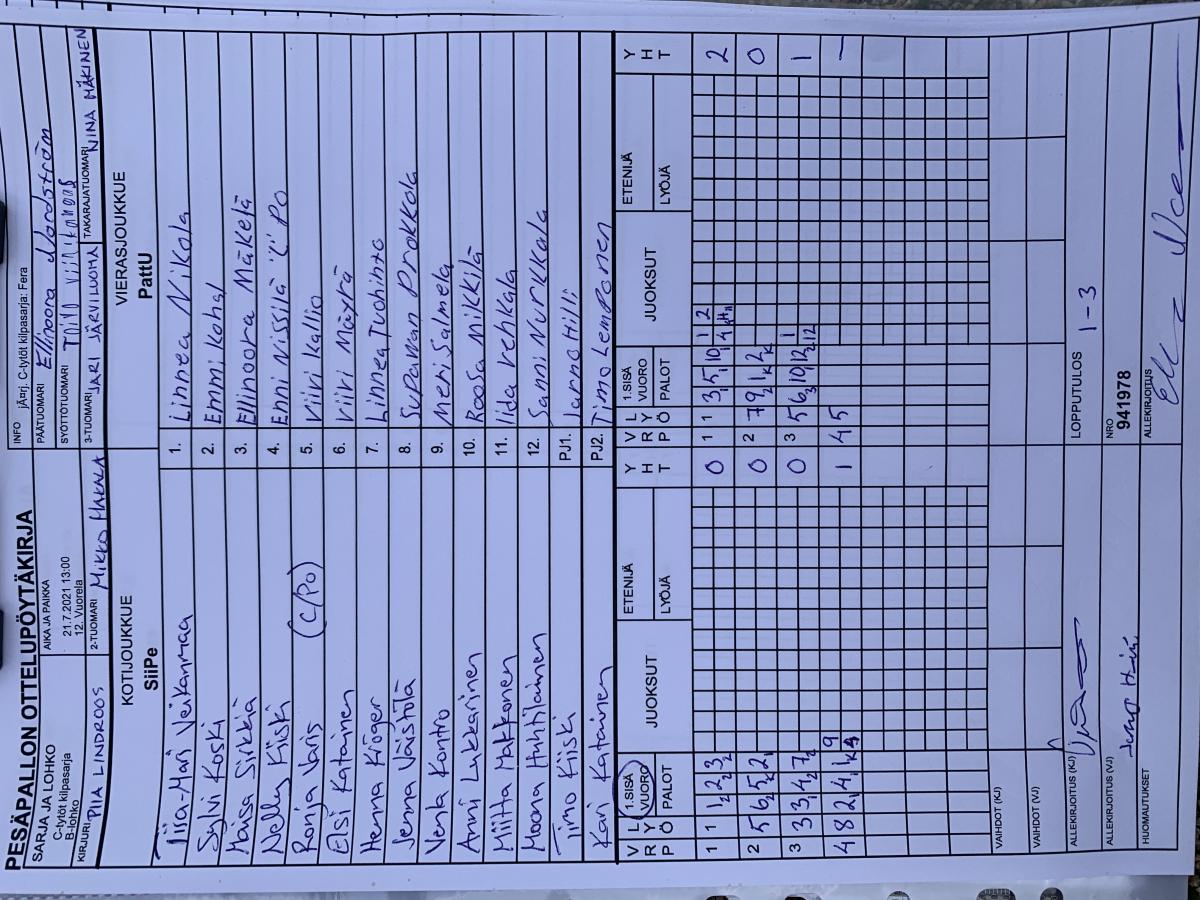 PESÄPALLON OTTELUPÖYTÄKIRJA
SARJA JA LOHKO
C-tytöt kilpasarja
B-lohko
AIKA JA PAIKKA
21.7.2021 13:00
12. Vuorela
INFO jÃ¤rj. C-tytöt kilpasarja: Fera
PÄÄTUOMARI Ellinoora Nordström
SYÖTTÖTUOMARI
KIRJURI PIIA LINDROOS
2-TUOMARI MIKKO
3-TUOMARI JARI JÄRVILUOMA
TAKARAJATUOMARI NINA MÄKINEN
KOTIJOUKKUE
SiiPe
VIERASJOUKKUE
PattU
Tiia-Mari Veikanmaa
1. Linnea Nikola
Sylvi Koski
2. Emmi
Maisa Sirkiä
3. Ellinoora Mäkelä
Nelly Kiiski
4. Enni Nissilä "C" Po
Ronja Varis (C/Po)
5. Viivi Kallio
Elsi Katainen
6. Viivi Mäyrä
Henna Kröger
7. Linnea Tuohinto
Jenna Väistölä
8. Supawan Prokkola
Venla Kontro
9. Meri Salmela
Anni Lukkarinen
10. Roosa Mikkilä
Miitta Makkonen
11. Iida Vehkala
Moona Huhtilainen
12. Sanni Nurkkala
Timo Kiiski
PJ1. Janno Hilli
Kari Katainen
PJ2. Timo Lemponen
V R P
L Y Ö
1.SISÄ VUORO
PALOT
JUOKSUT
ETENIJÄ
LYÖJÄ
Y H T
V R P
L Y Ö
1.SISÄ VUORO
PALOT
JUOKSUT
ETENIJÄ
LYÖJÄ
Y H T
1 1 0
1 1 2
2 5 0
2 7 0
3 3 0
3 5 1
4 8 1
4 5 –
VAIHDOT (KJ)
VAIHDOT (VJ)
ALLEKIRJOITUS (KJ)
LOPPUTULOS 1-3
ALLEKIRJOITUS (VJ)
NRO
941978
HUOMAUTUKSET
ALLEKIRJOITUS